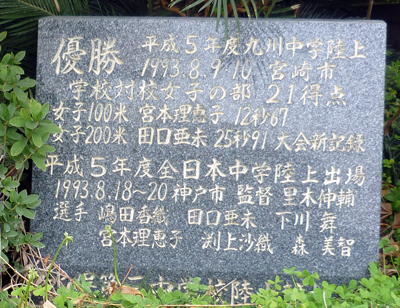 優勝 平成5年度九州中学陸上
1993.8.9~10 宮崎市
学校対校女子の部 21得点
女子100米 宮本理恵子 12秒67
女子200米 田口亜未 25秒91 大会新記録
平成5年度全日本中学陸上出場
1993.8.18~20 神戸市 監督 里木伸輔
選手 嶋田香織 田口亜未 下川 舞
宮本理恵子 渕上沙織 森 美智